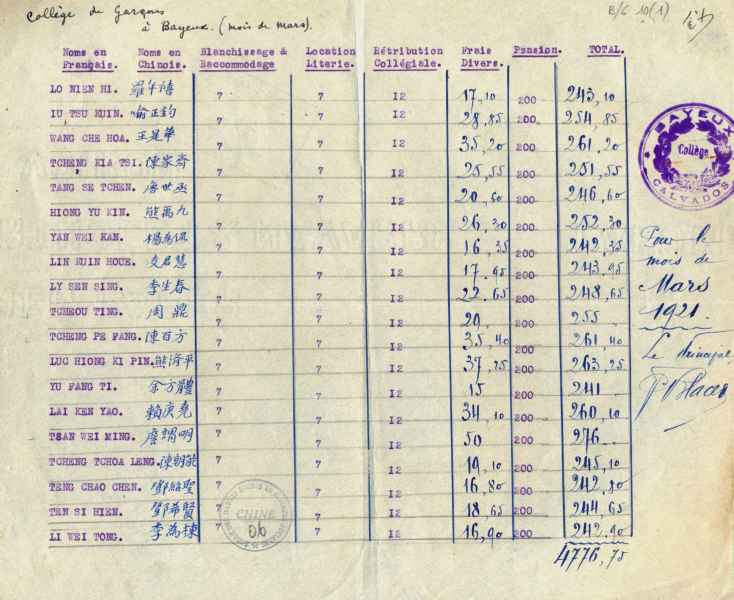 Collège de Garçons
à Bayeux. (mois de Mars).
B/6 10(1)
Noms en Français. Noms en Chinois. Blanchissage & Raccommodage Location Literie. Rétribution Collégiale. Frais Divers. Pension. TOTAL.
LO NIEN HI. 羅年禧 7 7 I2 17,10 200 243,10
IU TSU KUIN. 俞正鈞 7 7 I2 28,85 200 254,85
WANG CHE HOA. 王建華 7 7 I2 35,20 200 261,20
TCHENG KIA TSI. 陳家齊 7 7 I2 25,55 200 251,55
TANG SE TCHEN. 唐世丞 7 7 I2 20,60 200 246,60
HIONG YU KIN. 熊禹九 7 7 I2 26,30 200 252,30
YAN WEI KAN. 楊為侃 7 7 I2 16,35 200 242,35
LIN KUIN HOUE. 7 7 I2 17,95 200 243,95
LY SEN SING. 李生春 7 7 I2 22,65 200 248,65
TCHEOU TING. 周鼎 7 7 I2 29, 200 255
TCHENG PE FANG. 陳百方 7 7 I2 35,40 200 261,40
LUC HIONG KI PIN. 熊濟平 7 7 I2 37,25 200 263,25
YU FANG TI. 余方體 7 7 I2 15 200 241
LAI KEN YAO. 賴庚堯 7 7 I2 34,10 200 260,10
TSAN WEI MING. 7 7 I2 50 200 276
TCHENG TCHOA LENG. 7 7 I2 19,10 200 245,10
TENG CHAO CHEN. 鄧紹聖 7 7 I2 16,80 200 242,80
TEN SI HIEN. 鄧希賢 7 7 I2 18,65 200 244,65
LI WEI TONG. 李為棟 7 7 I2 16,90 200 242,90
4776,75
BAYEUX
Collège
CALVADOS
Pour le
mois de
Mars
1921.
Le Principal
CHINE